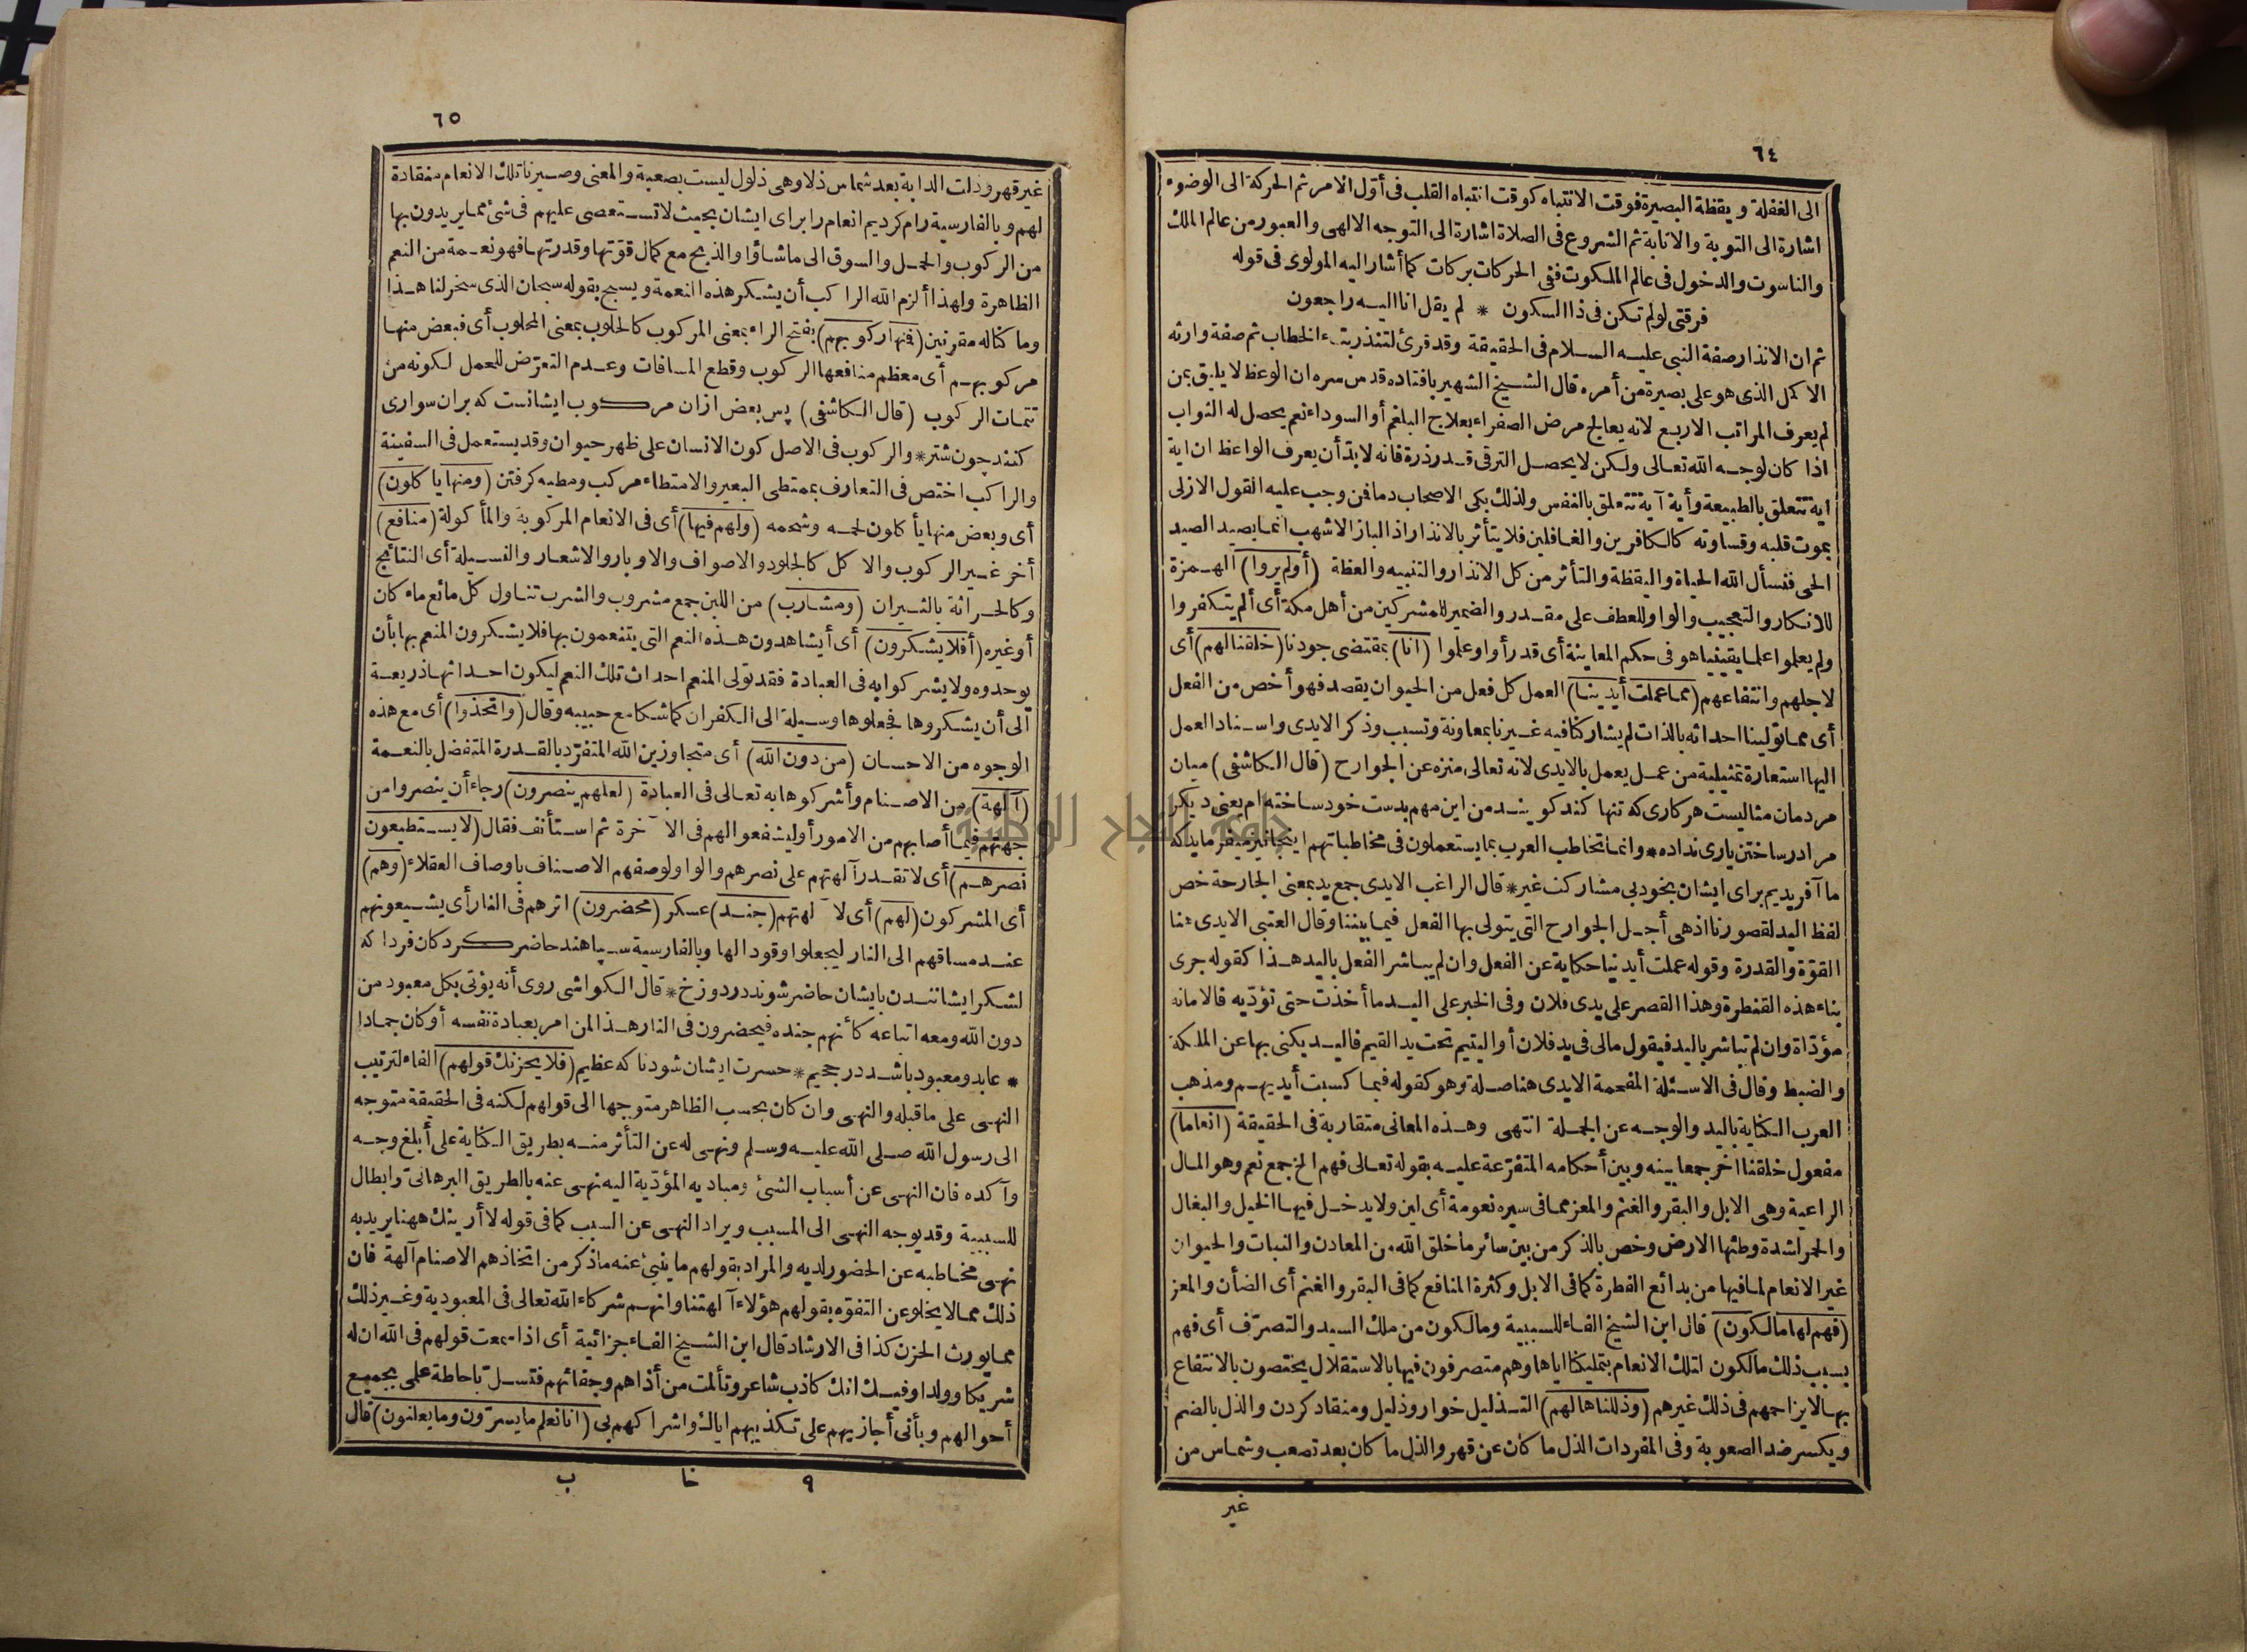 ٦٤
الى الغفلة ويقظة البصيرة فوقت الانتباه كوقت انتباه القلب فى أوّل الامر ثم الحركة الى الوضوء
اشارة الى التوبة والانابة ثم الشروع فى الصلاة اشارة الى التوجه الالهى والعبور من عالم الملك
والناسوت والدخول فى عالم الملكوت ففى الحركات بركات كما أشار اليه المولوى فى قوله
فرقتى لولم تكن فى ذا السكون * لم يقل انا اليه راجعون
ثم ان الانذار صفة النبى عليه السلام فى الحقيقة وقد قرئ لتنذر بتاء الخطاب ثم صفة وارثه
الاكمل الذى هو على بصيرة من أمره قال الشيخ الشهير بافتاده قدس سره ان الوعظ لا يليق بمن
لم يعرف المراتب الاربع لانه يعالج مرض الصفراء بعلاج البلغم أو السوداء نعم يحصل له الثواب
اذا كان لوجه الله تعالى ولكن لا يحصل الترقى قدر ذرة فانه لابدّ أن يعرف الواعظ ان اية
اية تتعلق بالطبيعة وأية آية تتعلق بالنفس ولذلك بكى الاصحاب دما فمن وجب عليه القول الازلى
بموت قلبه وقساوته كالكافرين والغافلين فلا يتأثر بالانذار اذ الباز الاشهب انما يصيد الصيد
الحى فنسأل الله الحياة واليقظة والتأثر من كل الانذار والتنبيه والعظة (أولم يروا) الهمزة
للانكار والتعجيب والواو للعطف على مقدر والضمير للمشركين من أهل مكة أى ألم يتفكروا
ولم يعلموا علما يقينيا هو فى حكم المعاينة أى قد رأوا وعلموا (انا) بمقتضى جودنا (خلقنا لهم) أى
لاجلهم وانتفاعهم (مما عملت أيدينا) العمل كل فعل من الحيوان يقصد فهو أخص من الفعل
أى مما تولينا احداثه بالذات لم يشاركنا فيه غيرنا بمعاونة وتسبب وذكر الايدى واسناد العمل
اليها استعارة تمثيلية من عمل يعمل بالايدى لانه تعالى منزه عن الجوارح (قال الكاشفى) ميان
مردمان مثاليست هر كارى كه تنها كند كويند من اين مهم بدست خود ساخته ام يعنى ديكر
مرا در ساختن يارى نداده * وانما تخاطب العرب بما يستعملون فى مخاطباتهم اينجا نيز ميفرمايد كه
ما آفريديم براى ايشان بخود بى مشاركت غير * قال الراغب الايدى جمع يد بمعنى الجارحة خص
لفظ اليد لقصورنا اذ هى أجل الجوارح التى يتولى بها الفعل فيما بيننا وقال العتبى الايدى هنا
القوّة والقدرة وقوله عملت أيدينا حكاية عن الفعل وان لم يباشر الفعل باليد هذا كقوله جرى
بناء هذه القنطرة وهذا القصر على يدى فلان وفى الخبر على اليد ما أخذت حتى تؤدّيه فالامانة
مؤدّاة وان لم تباشر باليد فيقول مالى فى يد فلان أو اليتيم تحت يد القيم فاليد يكنى بها عن الملكة
والضبط وقال فى الاسئلة المفحمة الايدى هنا صلة وهو كقوله فبما كسبت أيديهم ومذهب
العرب الكناية باليد والوجه عن الجملة انتهى وهذه المعانى متقاربة فى الحقيقة (انعاما)
مفعول خلقنا اخر جمعا بينه وبين أحكامه المتفرّعة عليه بقوله تعالى فهم الخ جمع نعم وهو المال
الراعية وهى الابل والبقر والغنم والمعز مما فى سيره نعومة أى لين ولا يدخل فيها الخيل والبغال
والحمر لشدة وطئها الارض وخص بالذكر من بين سائر ما خلق الله من المعادن والنبات والحيوان
غير الانعام لما فيها من بدائع الفطرة كما فى الابل وكثرة المنافع كما فى البقر والغنم أى الضأن والمعز
(فهم لها مالكون) قال ابن الشيخ الفاء للسببية ومالكون من ملك السيد والتصرّف أى فهم
بسبب ذلك مالكون لتلك الانعام بتمليكنا اياها وهم متصرفون فيها بالاستقلال يختصون بالانتفاع
بها لا يزاحمهم فى ذلك غيرهم (وذللناها لهم) التذليل خوار وذليل ومنقاد كردن والذل بالضم
ويكسر ضد الصعوبة وفى المفردات الذل ما كان عن قهر والذل ما كان بعد تصعب وشماس من
غير
٦٥
غير قهر وذلت الدابة بعد شماس ذلا وهى ذلول ليست بصعبة والمعنى وصيرنا تلك الانعام منقادة
لهم وبالفارسية رام كرديم انعام را براى ايشان بحيث لا تستعصى عليهم فى شئ مما يريدون بها
من الركوب والحمل والسوق الى ما شاؤا والذبح مع كمال قوّتها وقدرتها فهو نعمة من النعم
الظاهرة ولهذا ألزم الله الراكب أن يشكر هذه النعمة ويسبح بقوله سبحان الذى سخر لنا هذا
وما كنا له مقرنين (فمنها ركوبهم) بفتح الراء بمعنى المركوب كالحلوب بمعنى المحلوب أى فبعض منها
مركوبهم أى معظم منافعها الركوب وقطع المسافات وعدم التعرّض للحمل لكونه من
تتمات الركوب (قال الكاشفى) پس بعض ازان مركوب ايشانست كه بران سوارى
كنند چون شتر * والركوب فى الاصل كون الانسان على ظهر حيوان وقد يستعمل فى السفينة
والراكب اختص فى التعارف بممتطى البعير والامتطاء مركب ومطيه كرفتن (ومنها يأكلون)
أى وبعض منها يأكلون لحمه وشحمه (ولهم فيها) أى فى الانعام المركوبة والمأكولة (منافع)
أخر غير الركوب والاكل كالجلود والاصواف والاوبار والاشعار والنسيلة أى النتائج
وكالحراثة بالثيران (ومشارب) من اللبن جمع مشروب والشرب تناول كل مائع ماء كان
أو غيره (أفلا يشكرون) أى أيشاهدون هذه النعم التى يتنعمون بها فلا يشكرون المنعم بها بأن
يوحدوه ولا يشركوا به فى العبادة فقد تولى المنعم احداث تلك النعم ليكون احداثها ذريعة
الى أن يشكروها فجعلوها وسيلة الى الكفران كما شكا مع حبيبه وقال (واتخذوا) أى مع هذه
الوجوه من الاحسان (من دون الله) أى متجاوزين الله المتفرّد بالقدرة المتفضل بالنعمة
(آلهة) من الاصنام وأشركوها به تعالى فى العبادة (لعلهم ينصرون) رجاء أن ينصروا من
جهتهم فيما أصابهم من الامور أو ليشفعوا لهم فى الآخرة ثم استأنف فقال (لا يستطيعون
نصرهم) أى لا تقدر آلهتهم على نصرهم والواو لوصفهم الاصناف باوصاف العقلاء (وهم)
أى المشركون (لهم) أى لآلهتهم (جند) عسكر (محضرون) اثرهم فى النار أى يشيعونهم
عند مساقهم الى النار ليجعلوا وقودا لها وبالفارسية سپاهند حاضر كرد كان فردا كه
لشكر ايشانند با ايشان حاضر شوند در دوزخ * قال الكواشى روى أنه يؤتى بكل معبود من
دون الله ومعه اتباعه كأنهم جنده فيحضرون فى النار هذا لمن امر بعبادة نفسه أو كان جمادا
* عابد ومعبود باشد در جحيم * حسرت ايشان شود ناكه عظيم (فلا يحزنك قولهم) الفاء لترتيب
النهى على ما قبله والنهى وان كان بحسب الظاهر متوجها الى قولهم لكنه فى الحقيقة متوجه
الى رسول الله صلى الله عليه وسلم ونهى له عن التأثر منه بطريق الكناية على أبلغ وجه
وآكده فان النهى عن أسباب الشئ ومباديه المؤدّية اليه نهى عنه بالطريق البرهانى وابطال
للسببية وقد يوجه النهى الى المسبب ويراد النهى عن السبب كما فى قوله لا أرينك ههنا يريد به
نهى مخاطبه عن الحضور لديه والمراد بقولهم ما ينبئ عنه ما ذكر من اتخاذهم الاصنام آلهة فان
ذلك مما لا يخلو عن التفوّه بقولهم هؤلاء آلهتنا وانهم شركاء الله تعالى فى المعبودية وغير ذلك
مما يورث الحزن كذا فى الارشاد قال ابن الشيخ الفاء جزائية أى اذا سمعت قولهم فى الله ان له
شريكا وولدا وفيك انك كاذب شاعر وتألمت من أذاهم وجفائهم فتسل باحاطة علمى بجميع
أحوالهم وبأنى أجازيهم على تكذيبهم اياك واشراكهم بى (انا نعلم ما يسرّون وما يعلنون) قال
٩ خا ب
جامعة النجاح الوطنية